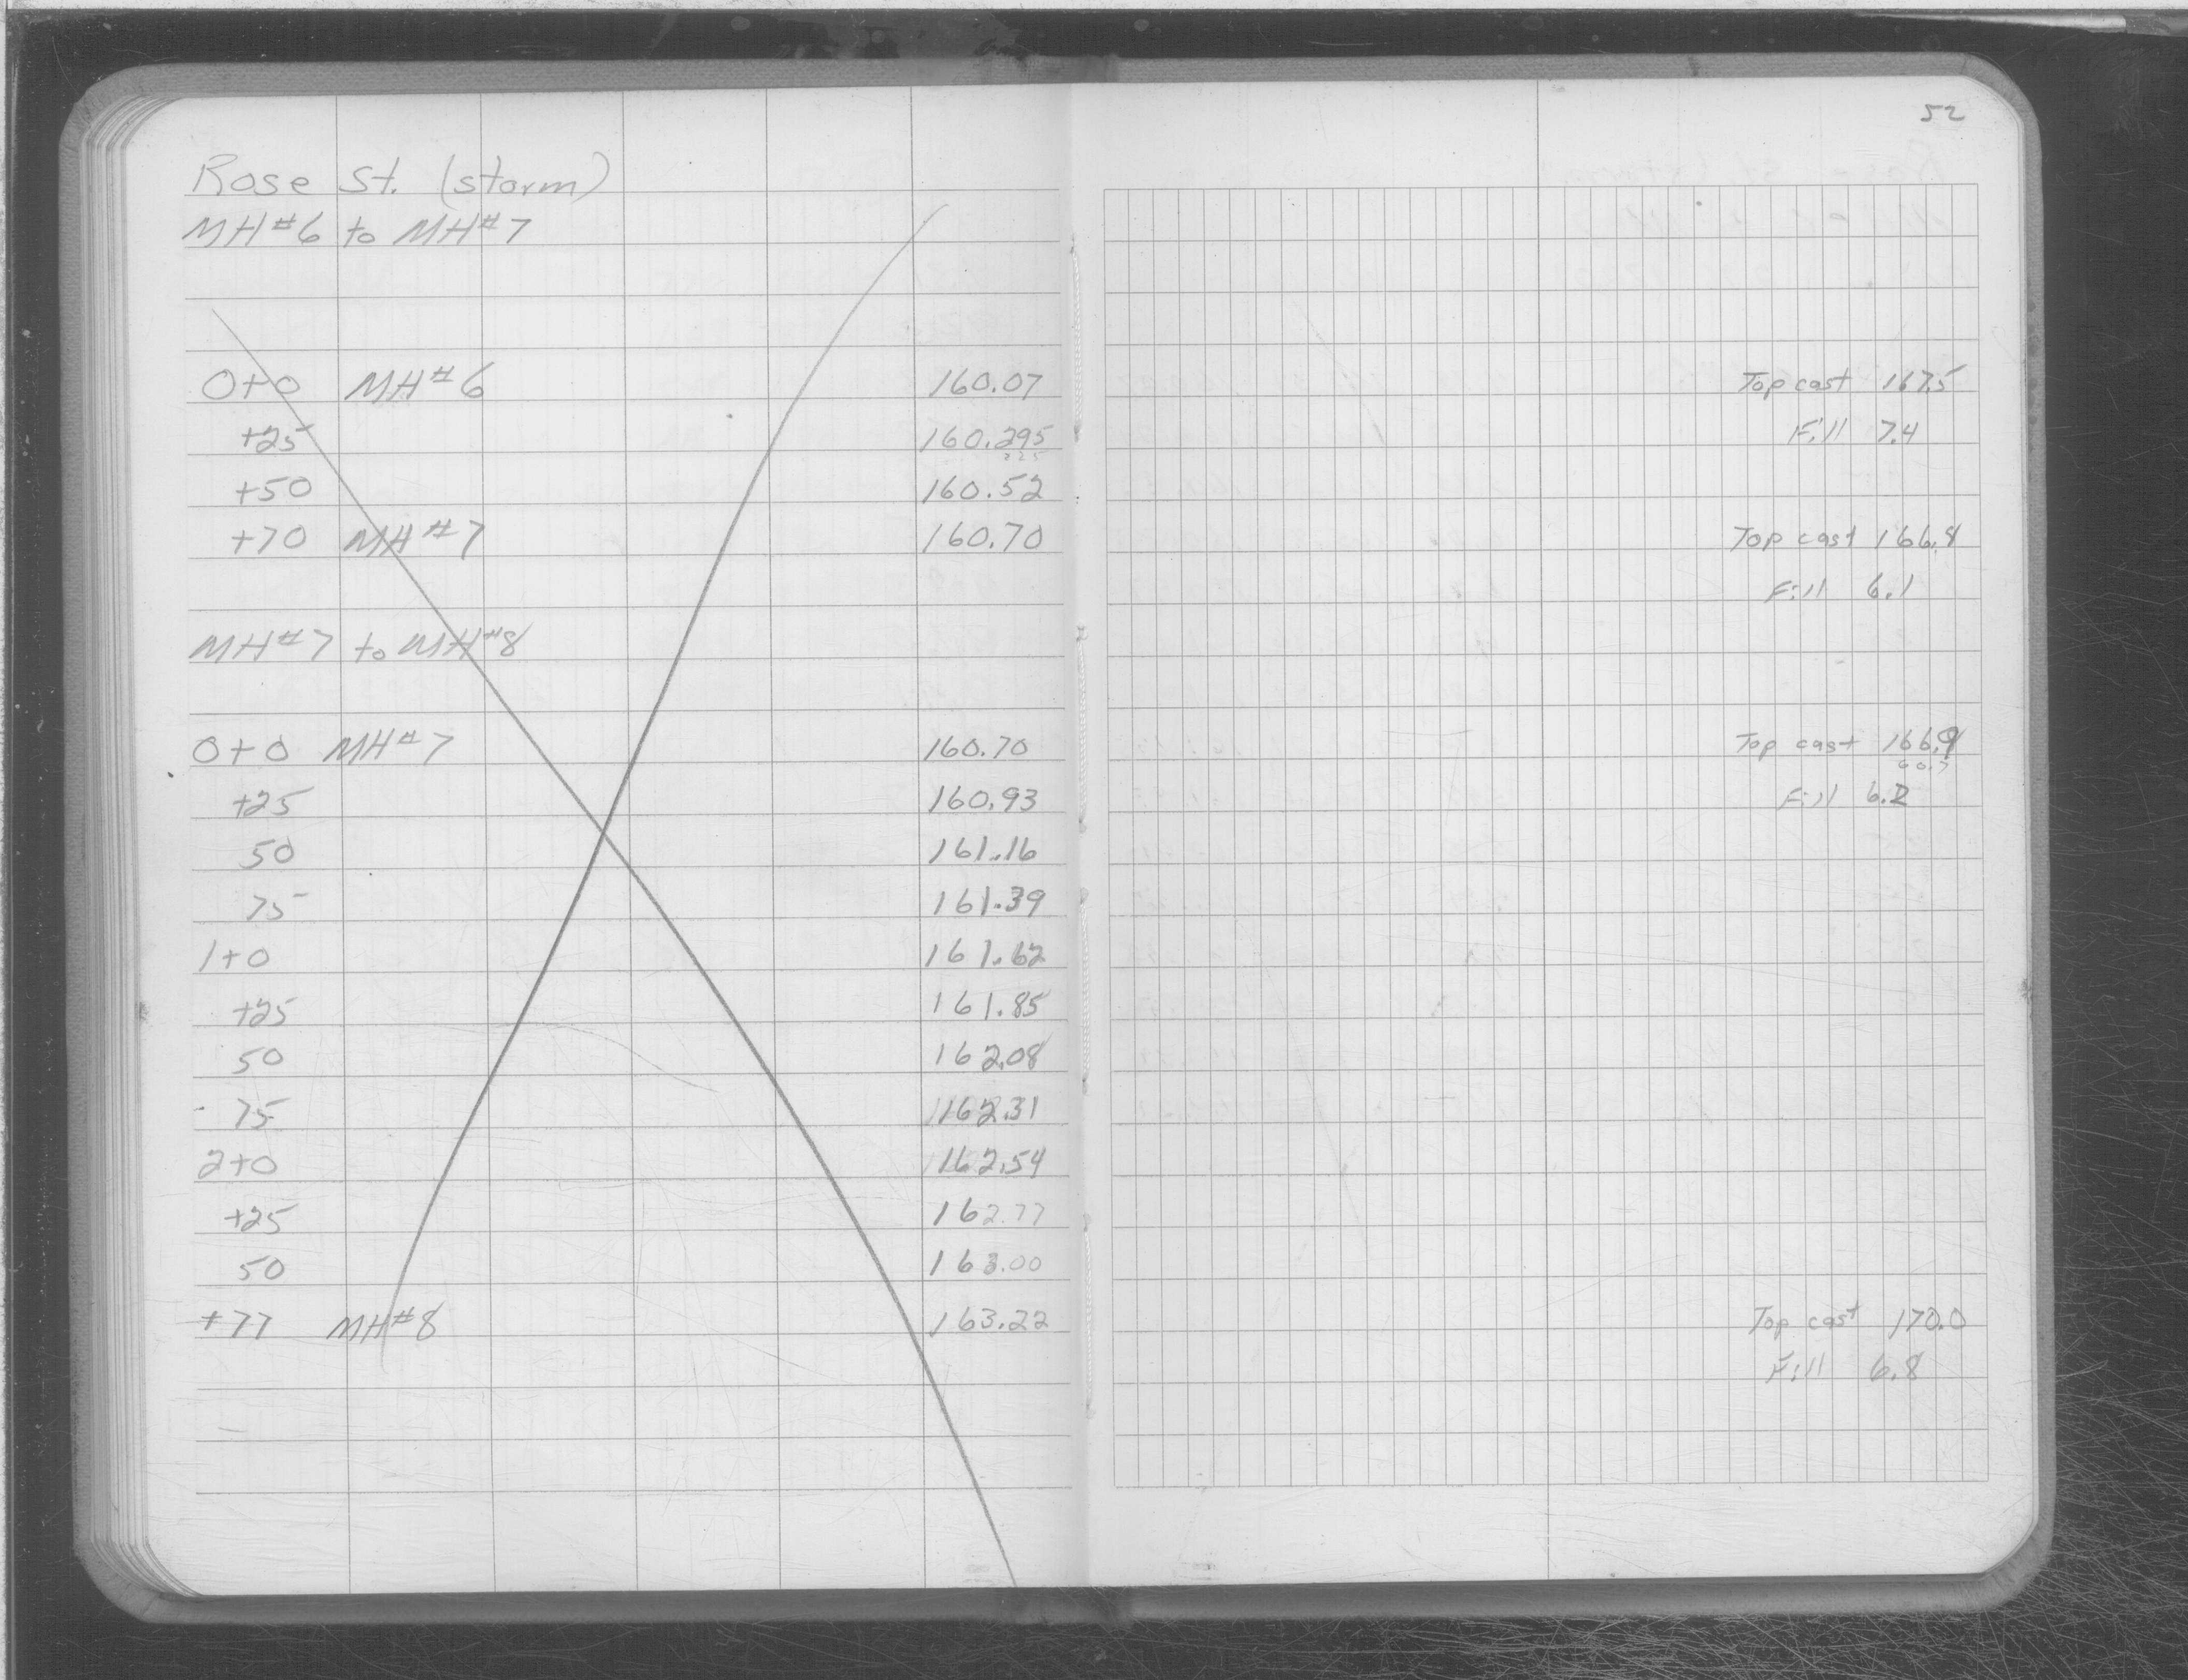 52
Rose St. (storm)
MH#6 to MH#7
0+0 MH#6 160.07 Top cast 167.5
+25 160.295 Fill 7.4
225
+50 160.52
+70 MH#7 160.70 Top cast 166.8
Fill 6.1
MH#7 to MH#8
0+0 MH#7 160.70 Top cast 166.9
60.7
+25 160.93 Fill 6.2
50 161.16
75 161.39
1+0 161.62
+25 161.85
50 162.08
75 162.31
2+0 162.54
+25 162.77
50 163.00
+77 MH#8 163.22 Top cast 170.0
Fill 6.8